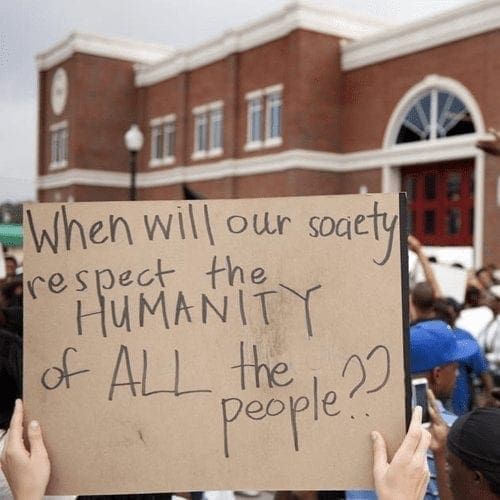 When will our society
respect the
HUMANITY
of ALL the
people??